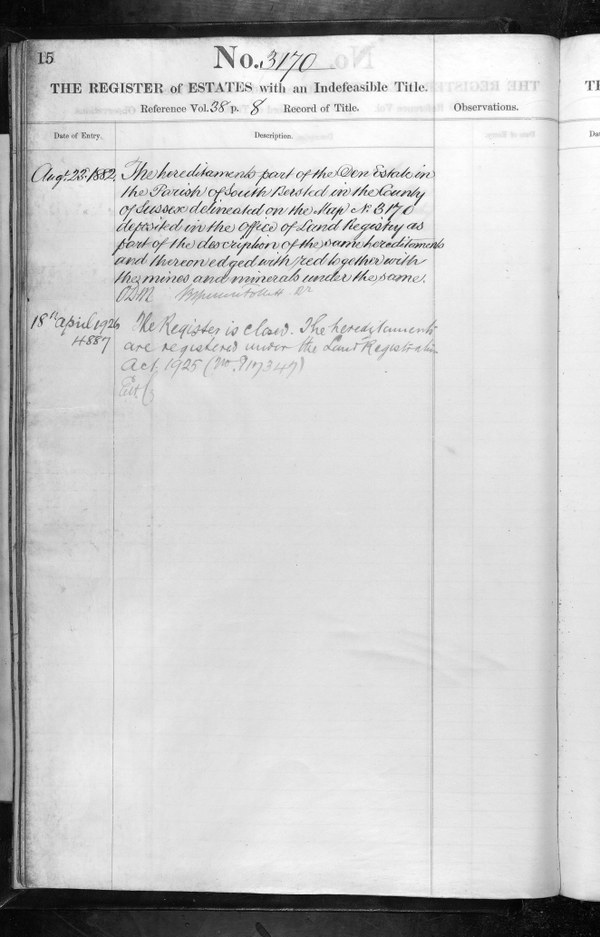 15
No. 3170
THE REGISTER of ESTATES with an Indefeasible Title.
Reference Vol. 38 p. 8 Record of Title.
Observations.
Date of Entry.
Description.
Augt. 23. 1882.
The hereditaments part of the Don Estate in
the Parish of South Bersted in the County
of Sussex delineated on the Map No. 3170
deposited in the Office of Land Registry as
part of the description of the same hereditaments
and thereon edged with red together with
the mines and minerals under the same.
18th April 1926
4887
The Register is closed. The hereditaments
are registered under the Land Registration
Act, 1925 (No. P17347)